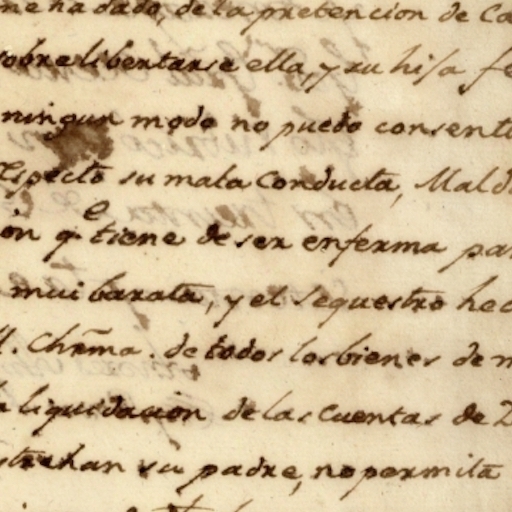 me ha dado, de la pretencion de Ca
sobre libertarse ella, y su hija fe
ningun modo no puedo consenti
respecto su mala Conducta, Mald
ón qe tiene de ser enferma par
mui barata, y el sequestro hec
M. Chrma. de todos los bienes de m
a liquidacion de las Cuentas de D
strahan su padre, no permita